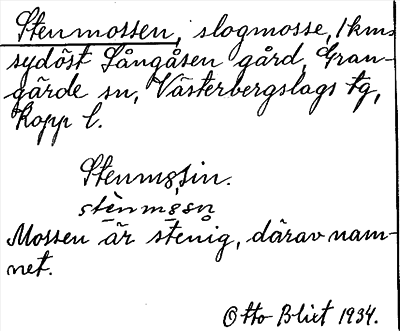 Stenmossen, slogmosse, 1 km
sydöst Sångåsen gård, Gran-
gärde sn, Västerbergslags tg,
Kopp l.
Mossen är stenig, därav nam-
net.
Otto Blixt 1934.